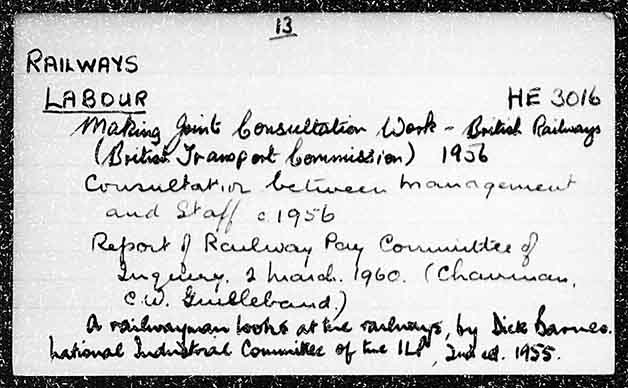 13
RAILWAYS
LABOUR HE 3016
Making Joint Consultation Work - British Railways
(British Transport Commission) 1956
Consultation between management
and Staff c.1956
Report of Railway Pay Committee of
Inquiry. 2 March. 1960. (Chairman,
C.W. Guillebaud.)
A railwayman looks at the railways, by Dick Barnes.
National Industrial Committee of the ILP, 2nd ed. 1955.